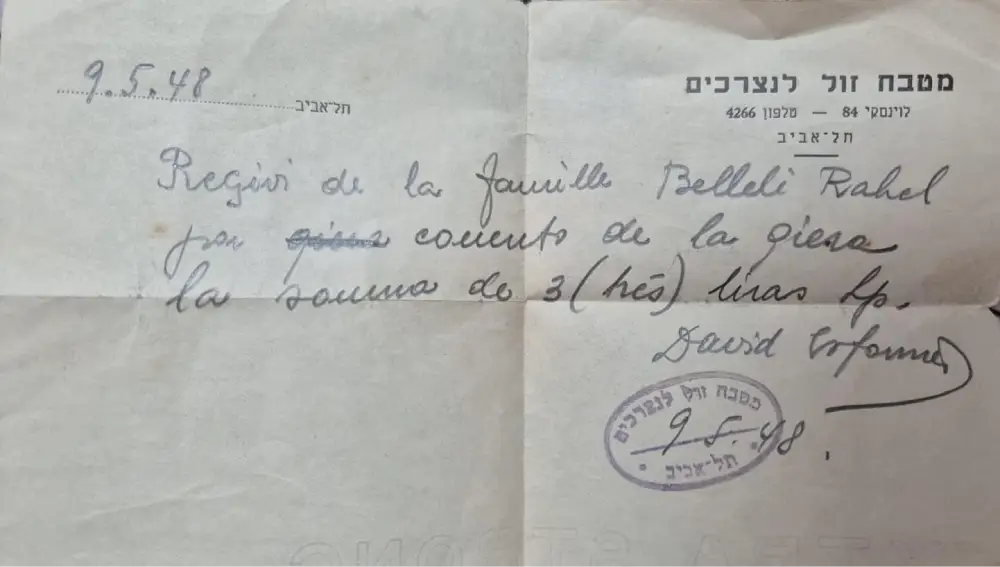 מטבח זול לנצרכים
לוינסקי 84 — טלפון 4266
תל־אביב
תל־אביב 9.5.48
Regivi de la famille Belleli Rahel
por comento de la giesa
la souma de 3 (trés) liras Lp.
David
מטבח זול לנצרכים
9 5. 48.
תל־אביב